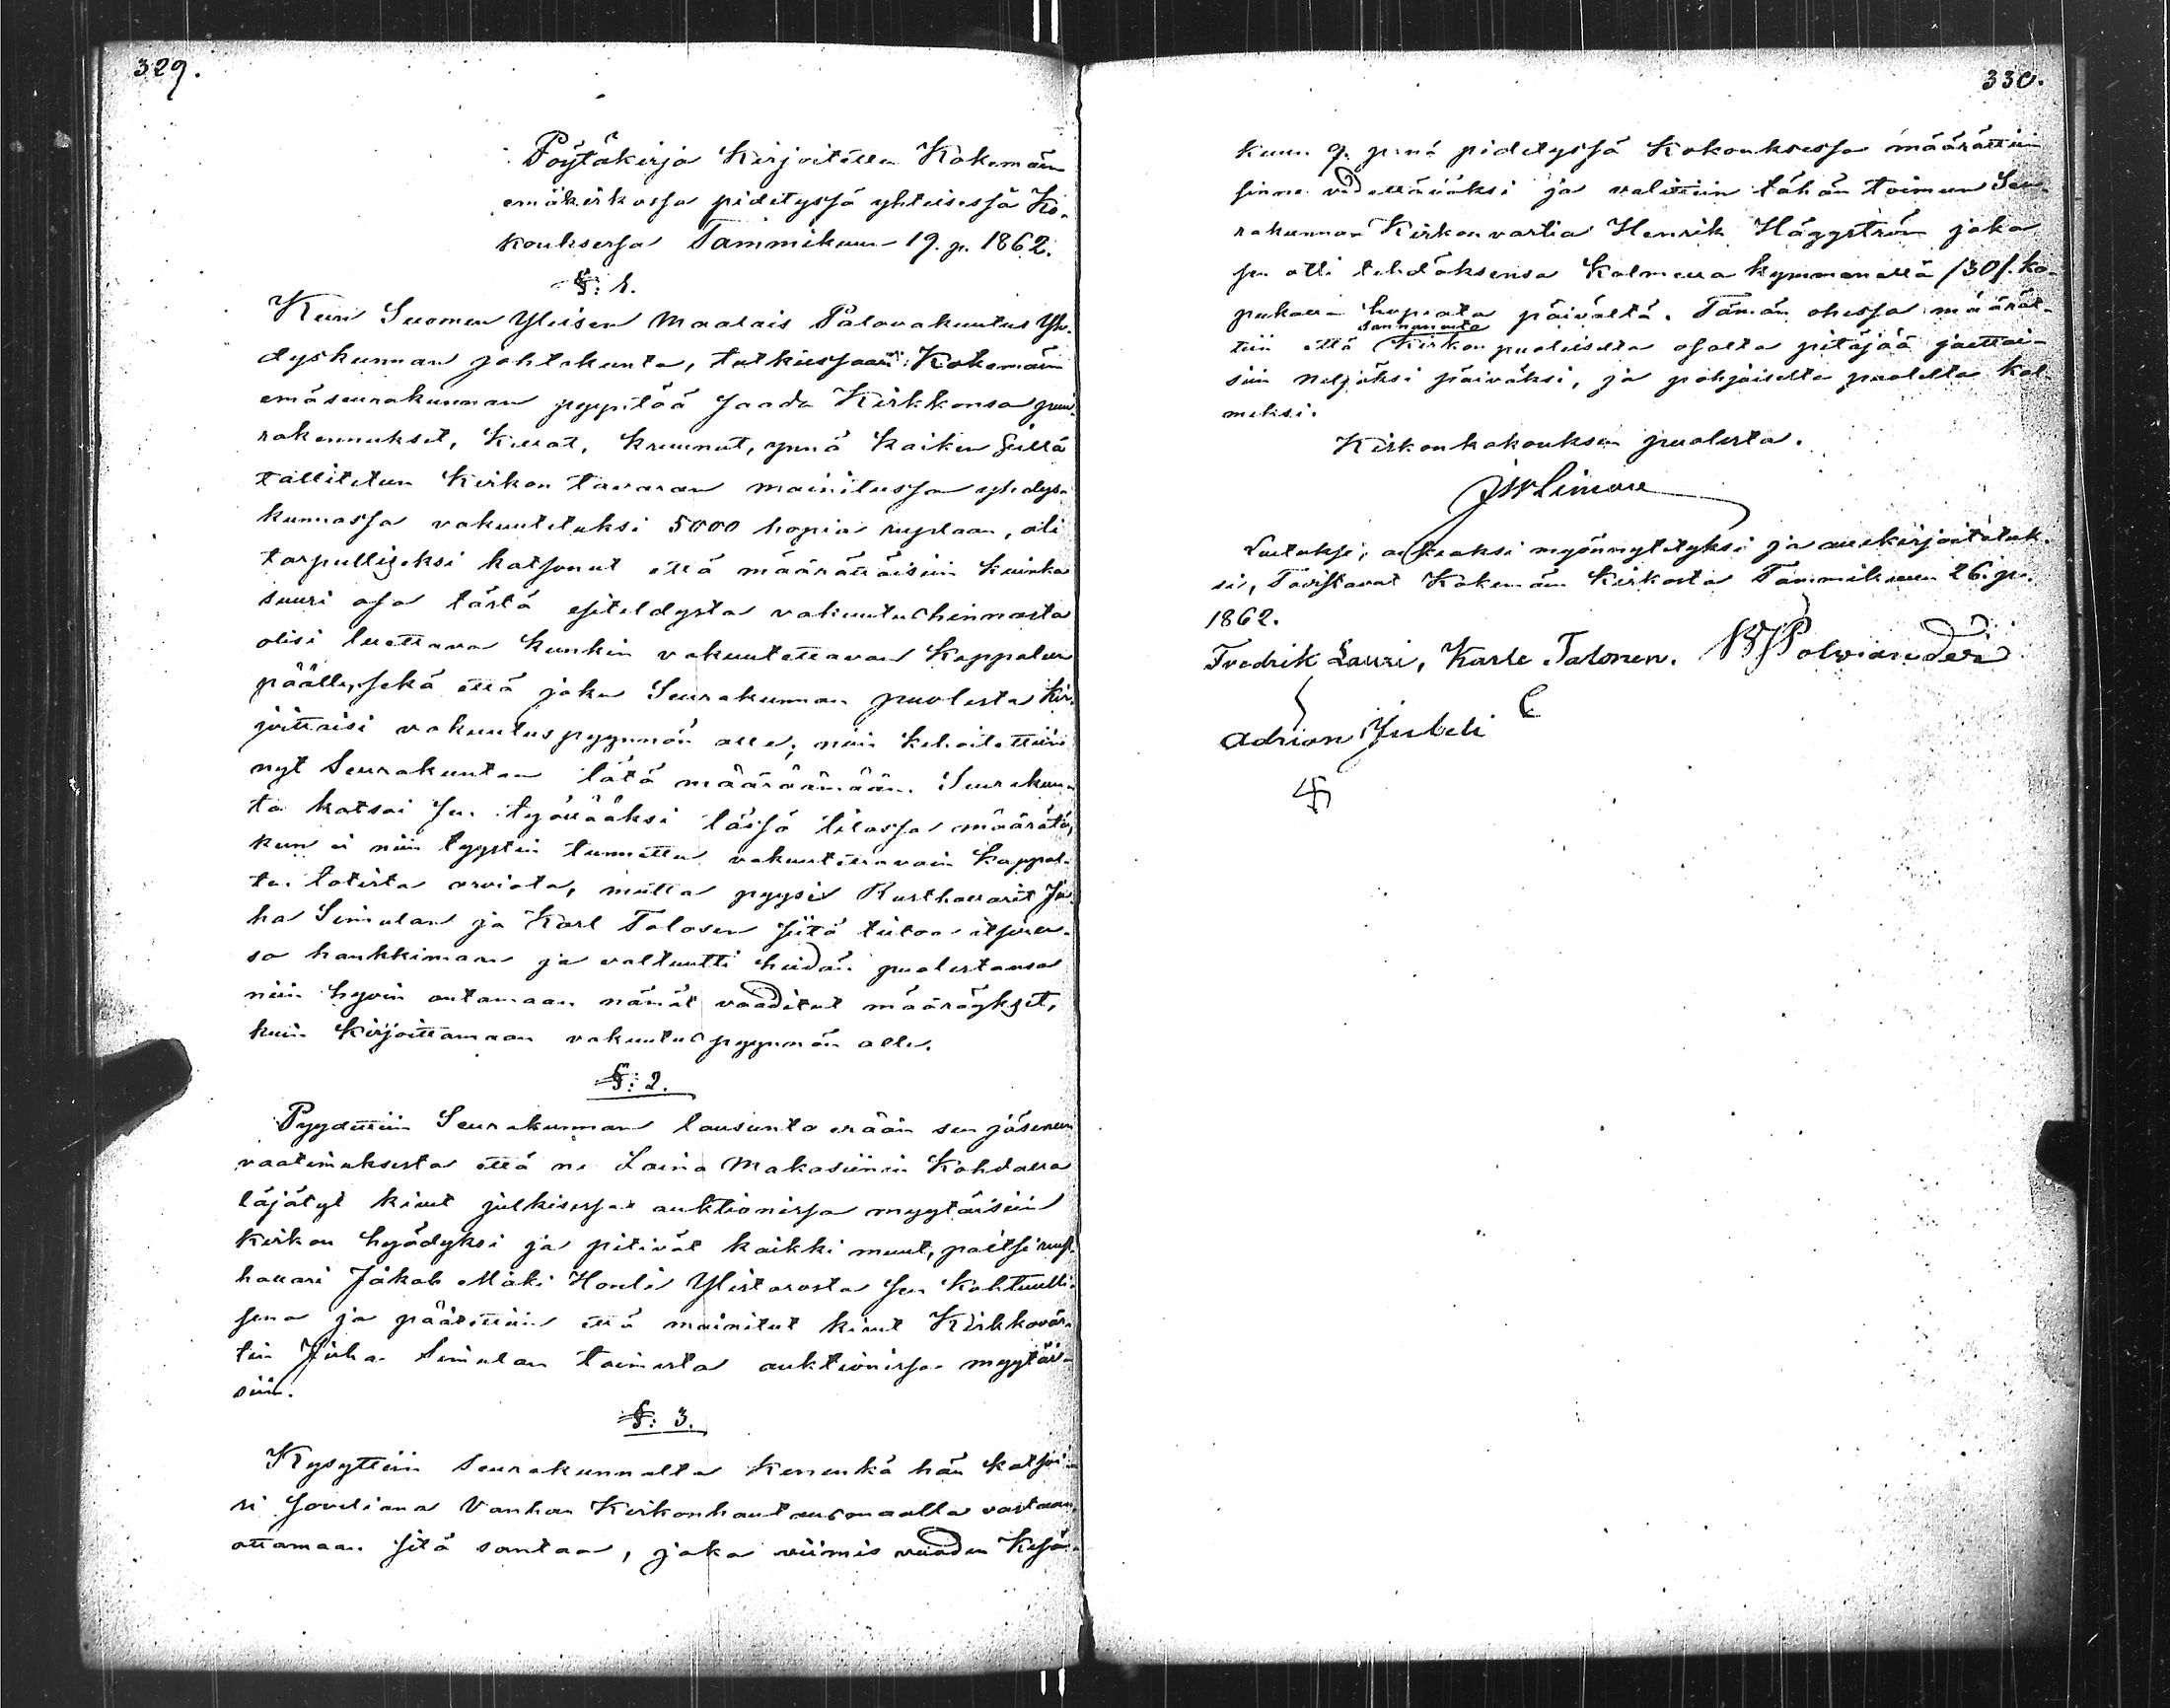 329.
Pöytäkirja Kirjoitettu Kokemäen
emäkirkossa pidetyssä yhteisessä Ko-
kouksessa Tammikuun 19. p. 1862.
§: 1.
Kuin Suomen Yleisen Maalais Palovakuutus Yh-
dyskunnan johtokunta, tutkiessaan Kokemäen
emäseurakunnan pyyntöä saada Kirkkonsa puu-
rakennukset, Kellot, kruunut, ynnä kaiken sillä
tallitetun Kirkon tavaran mainitussa yhdys-
kunnassa vakuutetuksi 5000 hopia ruplaan, oli
tarpulliseksi katsonut että määrättäisiin kuinka
suuri osa tästä esiteldystä vakuutushinnasta
olisi luettava kunkin vakuutettavan Kappalen
päälle, sekä että joku Seurakunnan puolesta kir-
joittaisi vakuutuspyynnön alle; niin kehoitettiin
nyt Seurakuntaa tätä määräämään. Seurakun-
ta katsoi sen työlääksi täisä tilassa määrätä,
kun ei niin tyystin tunnettu vakuutettavain kappal-
ten totista arviota, mutta pyysi Rusthollarit Ju-
ha Simulan ja Karl Talosen siitä tietoa itsiren-
sa hankkimaan ja valtuutti heidän puolestansa
niin hyvin antamaan nämät vaaditut määräykset,
kuin kirjoittamaan vakuutuspyynnön alle.
§: 2.
Pyydettiin Seurakunnan lausunto erään sen jäsenen
vaatimuksesta että ne Laina Makasiinin Kohdalla
läjätyt kivet julkisessa auktionissa myytäisiin
kirkon hyödyksi ja pitivät kaikki muut, paitsi rust-
hollari Jakob Mäki Houli Ylistarosta sen kohtuulli-
sena ja päätettiin että mainitut kivet Kirkkovär-
tin Juha Simulan toimesta auktionissa myytäi-
siin.
§: 3.
Kysyttiin Seurakunnalta Kenenkä hän katsoi-
si soveliana Vanhan Kirkonhautausmaalla vastaan
ottamaan sitä santaa, joka viimis vuoden Kesä-
330.
kuun 9. p:nä pidetyssä Kokouksessa määrättiin
sinne vedettäväksi ja valittiin tähän toimeen Seu-
rakunnan Kirkonvartia Henrik Häggström joka
sen otti tehdäksensä Kolmella kymmenellä /30/. ko-
pekalla hopiata päivältä. Tämän ohessa määrät-
sannanveto
tiin että Kirkon puoleiselta osalta pitäjää jaettai-
siin neljäksi päiväksi, ja pohjaiselta puolelta kol-
meksi.
Kirkonkokouksen puolesta.
Luetuksi, oikeaksi myönnytetyksi ja allekirjoitetuk-
si, Toristavat Kokemäen Kirkosta Tammikuun 26. p.
1862.
Fredrik Lauri, Karle Talonen. Polviander
Adrian Yubeli